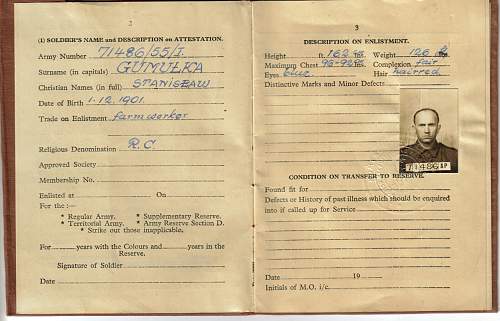 2
(1) SOLDIER'S NAME and DESCRIPTION on ATTESTATION.
Army Number 71486/55/I.
Surname (in capitals) GUMUŁKA
Christian Names (in full) STANISŁAW
Date of Birth 1.12.1901.
Trade on Enlistment farmworker
Religious Denomination R.C
Approved Society
Membership No.
Enlisted at On
For the :—
* Regular Army. * Supplementary Reserve.
* Territorial Army. * Army Reserve Section D.
* Strike out those inapplicable.
For years with the Colours and years in the
Reserve.
Signature of Soldier
Date
3
DESCRIPTION ON ENLISTMENT.
Height ft. 162 Weight 126
Maximum Chest 92-92 ins. Complexion fair
Eyes blue Hair
Distinctive Marks and Minor Defects
71486
CONDITION ON TRANSFER TO RESERVE.
Found fit for
Defects or History of past illness which should be enquired
into if called up for Service
Date 19
Initials of M.O. i/c.